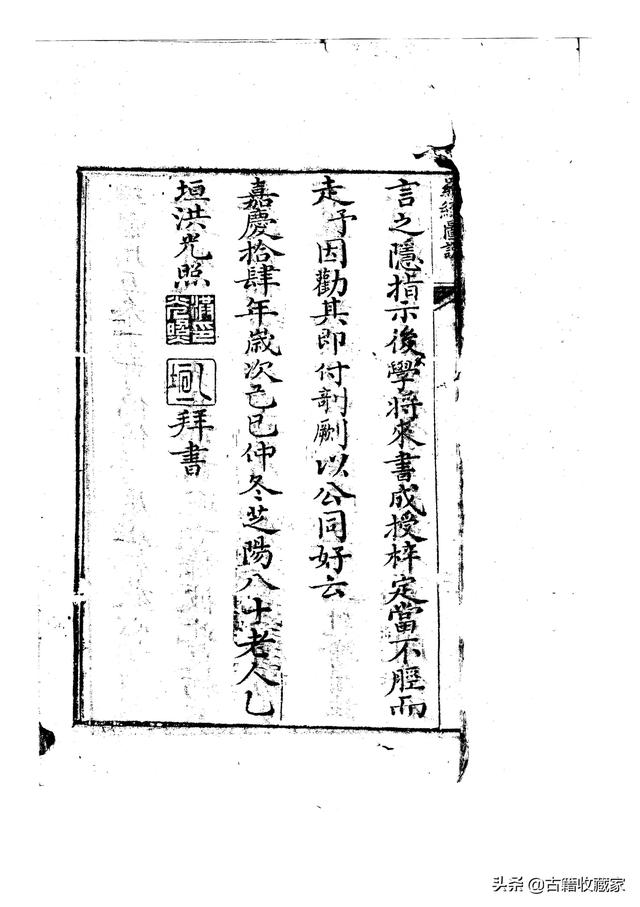 羅經圖
言之隱指示後學將來書成授梓定當不脛而
走予因勸其即付剞劂以公同好云
嘉慶拾肆年歲次己巳仲冬芝陽八十老人乙
垣洪光照
乙垣
拜書
头条 @古籍收藏家